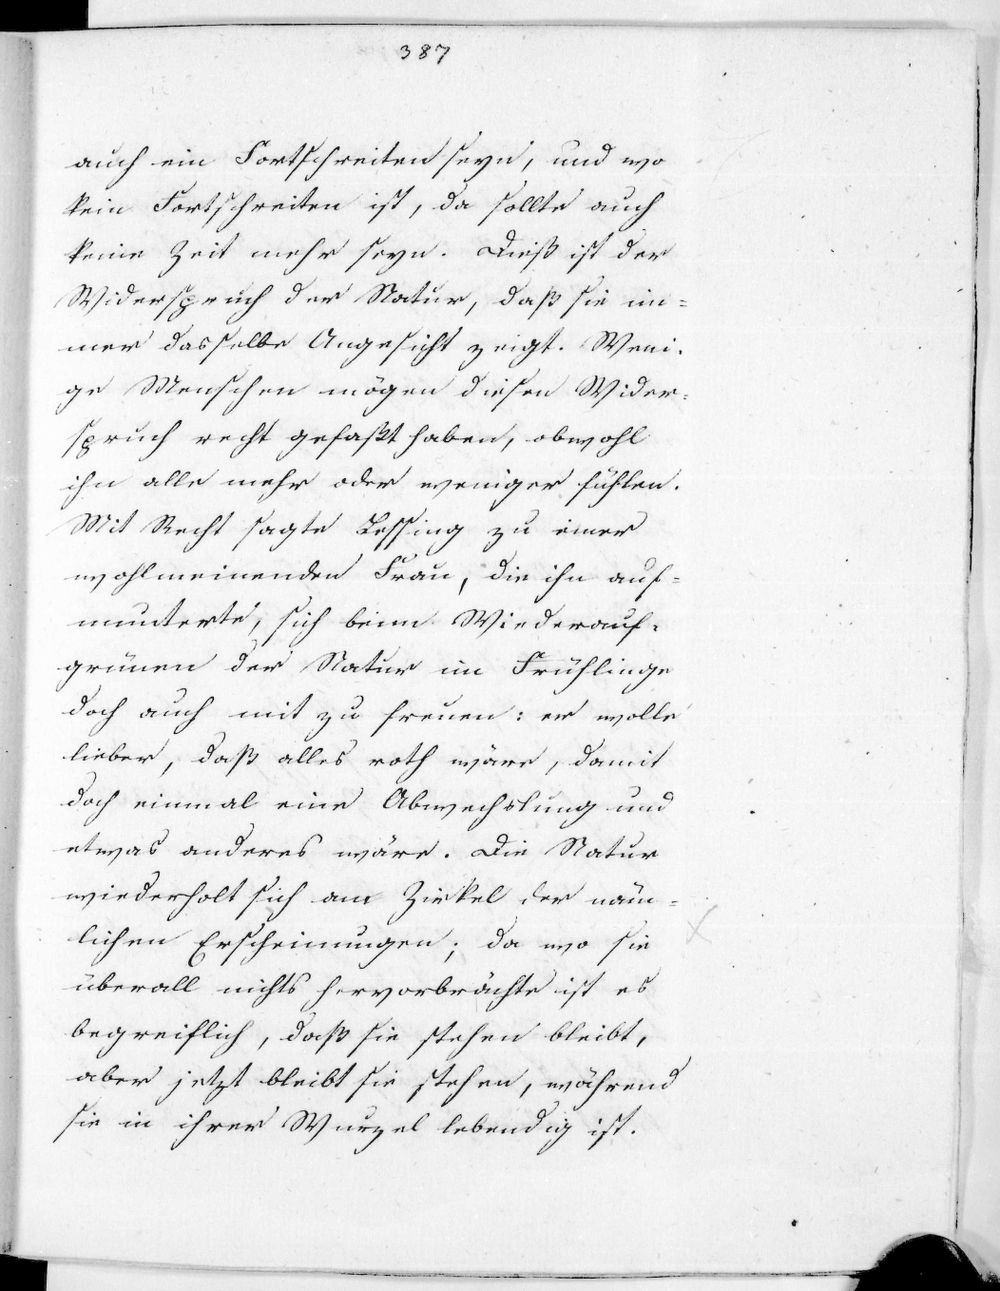 387
auch ein Fortschreiten seyn, und wo
kein Fortschreiten ist, da sollte auch
keine Zeit mehr seyn. Dieß ist der
Widerspruch der Natur, daß sie im=
mer dasselbe Angesicht zeigt. Weni-
ge Menschen mögen diesen Wider=
spruch recht gefaßt haben, obwohl
ihn alle mehr oder weniger fühlen.
Mit Recht sagte Lessing zu einer
wohlmeinenden Frau, die ihn auf=
munterte, sich beim Wiederauf=
grünen der Natur im Frühlinge
doch auch mit zu freuen: er wolle
lieber, daß alles roth wäre, damit
doch einmal eine Abwechslung und
etwas anderes wäre. Die Natur
wiederholt sich am Zirkel der näm=
lichen Erscheinungen; da wo sie
überall nichts hervorbrächte ist es
begreiflich, daß sie stehen bleibt,
aber jetzt bleibt sie stehen, während
sie in ihrer Wurzel lebendig ist.